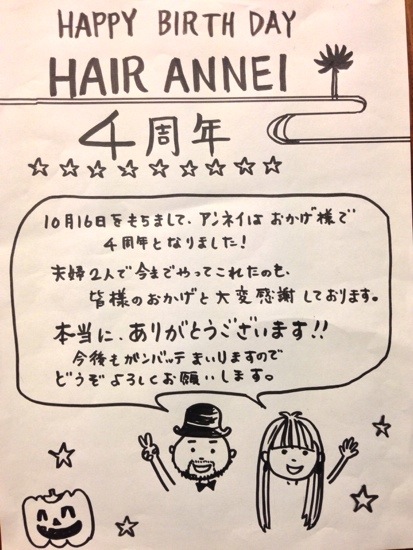 HAPPY BIRTH DAY
HAIR ANNEI
4周年
10月16日をもちまして、アンネイは おかげ様で
4周年となりました!
夫婦2人で今までやってこれたのも、
皆様のおかげと大変感謝しております。
本当に、ありがとうございます!!
今後もガンバッテまいりますので
どうぞよろしくお願いします。